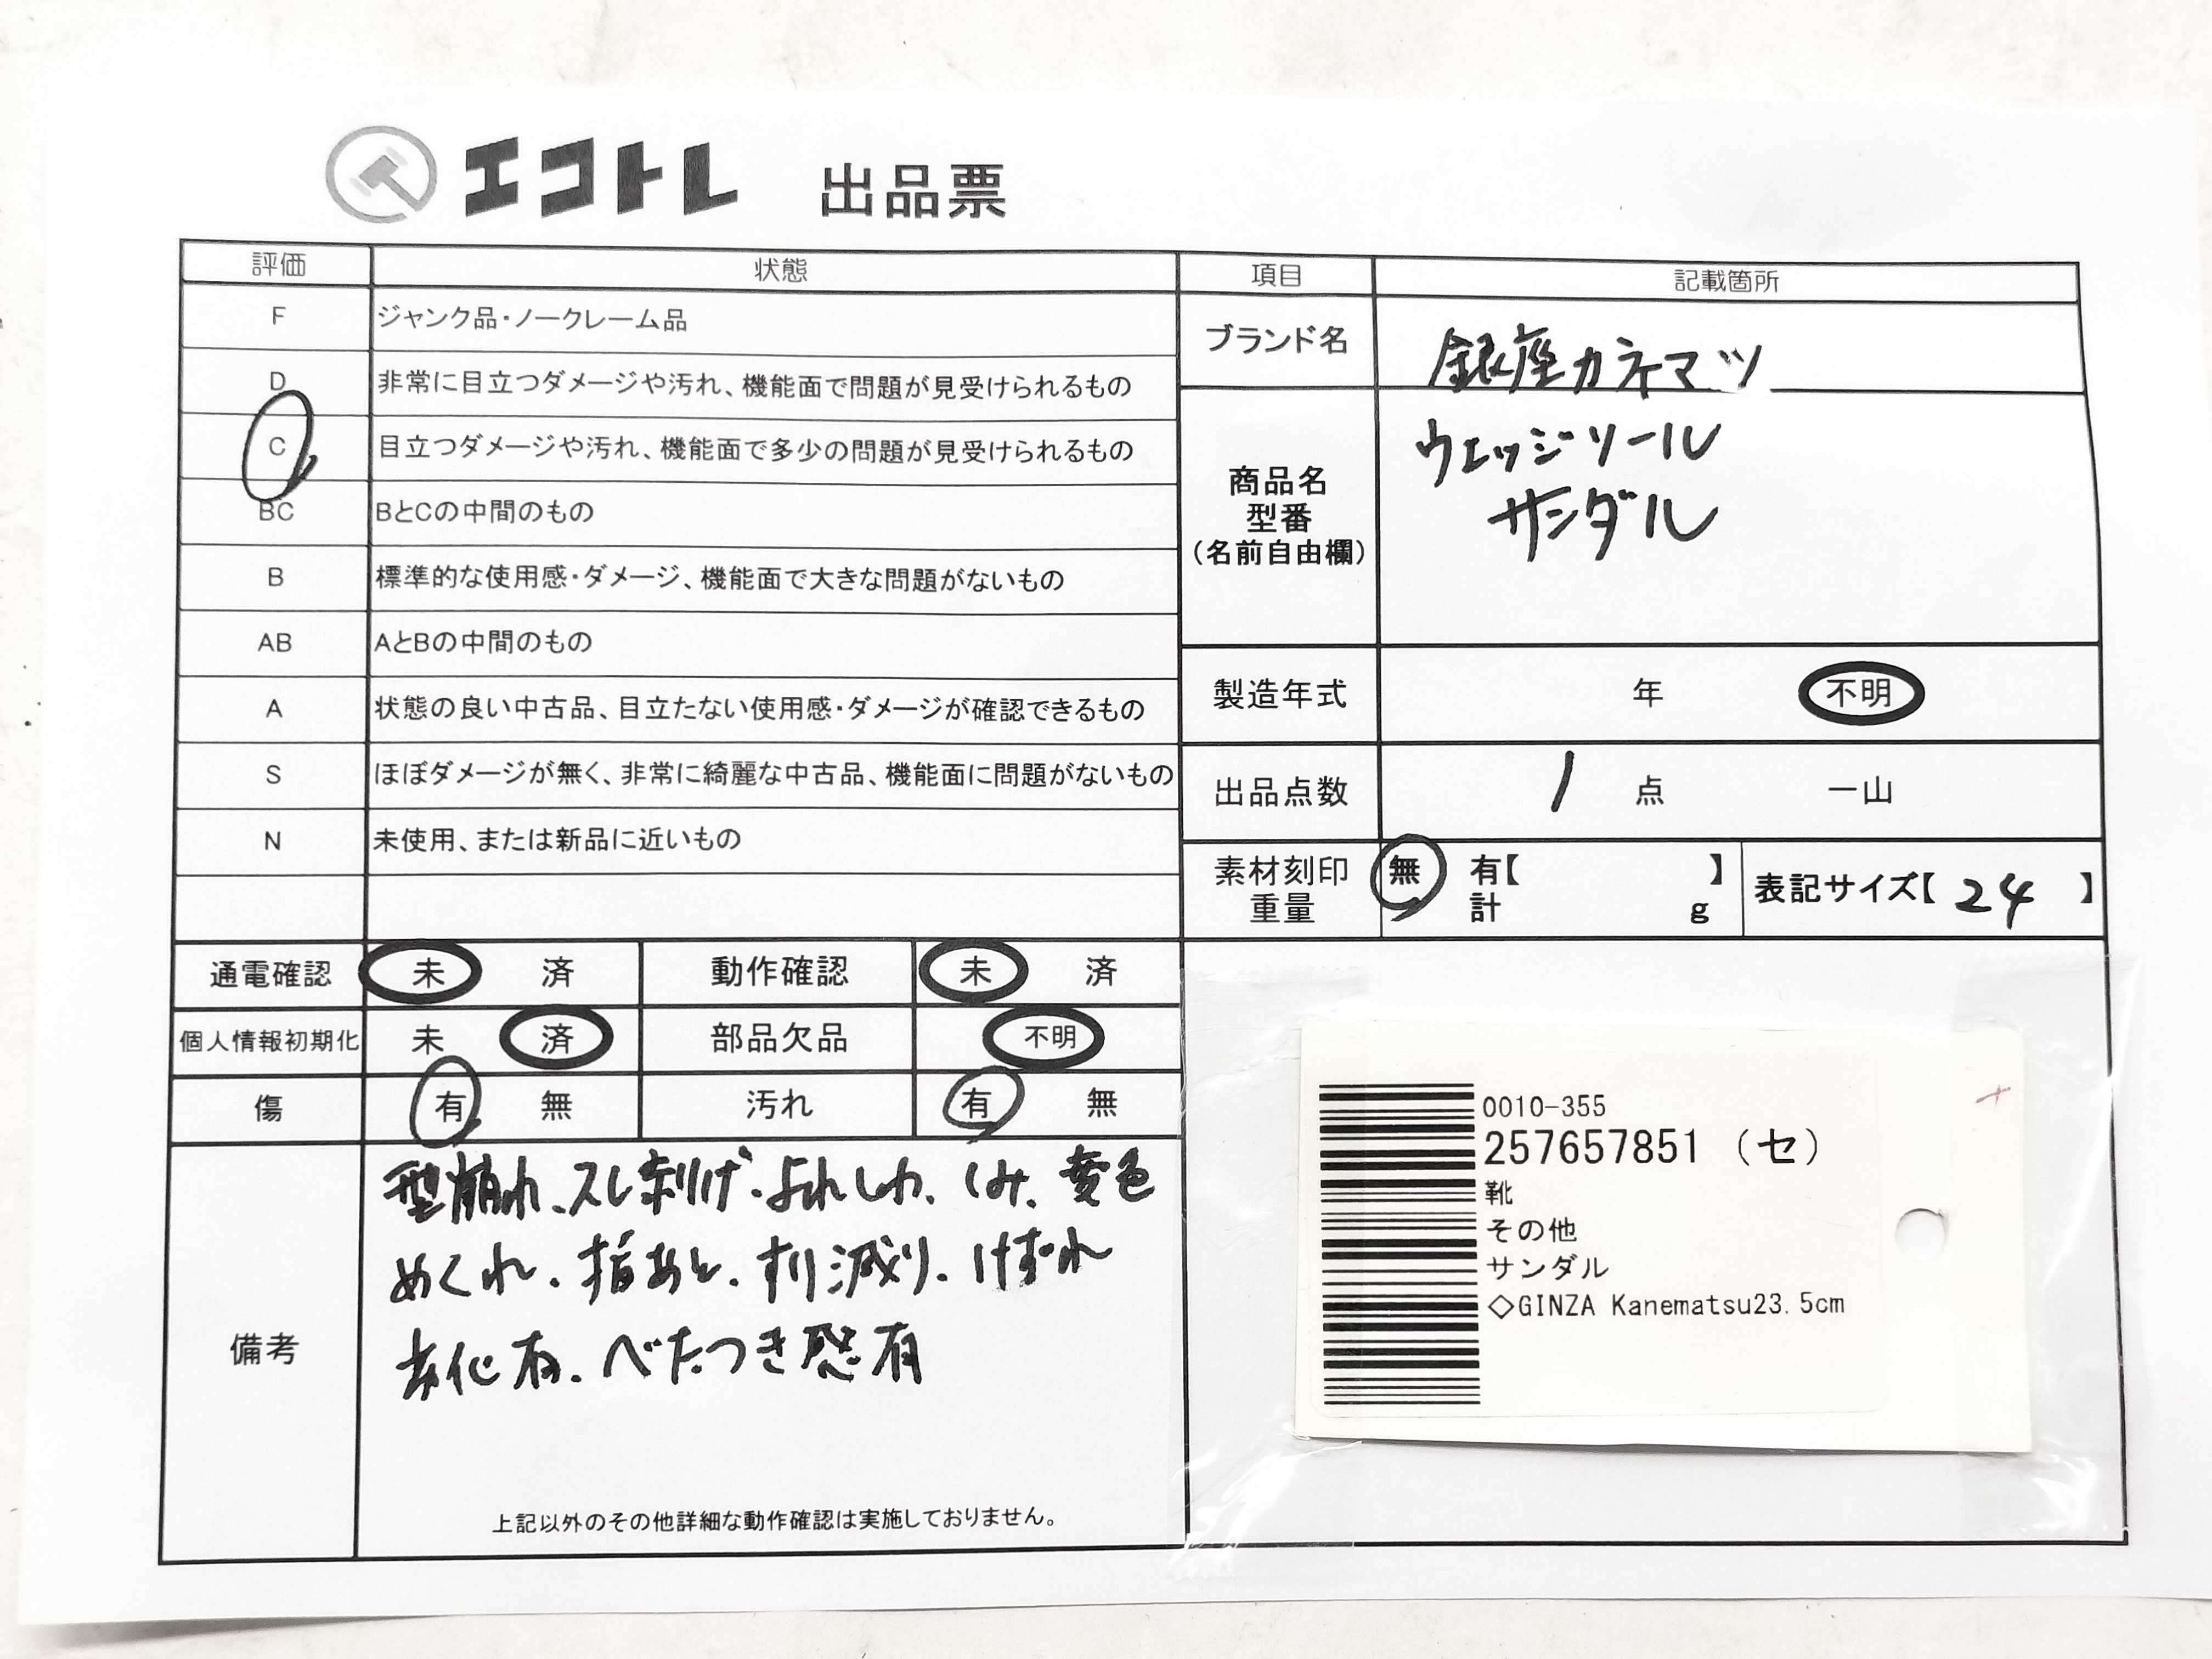 エコトレ 出品票
評価 状態
F ジャンク品・ノークレーム品
D 非常に目立つダメージや汚れ、機能面で問題が見受けられるもの
C 目立つダメージや汚れ、機能面で多少の問題が見受けられるもの
BC BとCの中間のもの
B 標準的な使用感・ダメージ、機能面で大きな問題がないもの
AB AとBの中間のもの
A 状態の良い中古品、目立たない使用感・ダメージが確認できるもの
S ほぼダメージが無く、非常に綺麗な中古品、機能面に問題がないもの
N 未使用、または新品に近いもの
項目 記載箇所
ブランド名 銀座カネマツ
商品名
型番
(名前自由欄)
ウェッジソール
サンダル
製造年式 年 不明
出品点数 1 点 一山
素材刻印
重量
無 有【 】
計 g
表記サイズ【 24 】
通電確認 未 済 動作確認 未 済
個人情報初期化 未 済 部品欠品 不明
傷 有 無 汚れ 有 無
備考
型崩れ、スレ剥げ、よれしわ、しみ、変色
めくれ、指あと、すり減り、けずれ
劣化有、べたつき感有
上記以外のその他詳細な動作確認は実施しておりません。
0010-355
257657851 (セ)
靴
その他
サンダル
◇GINZA Kanematsu23.5cm